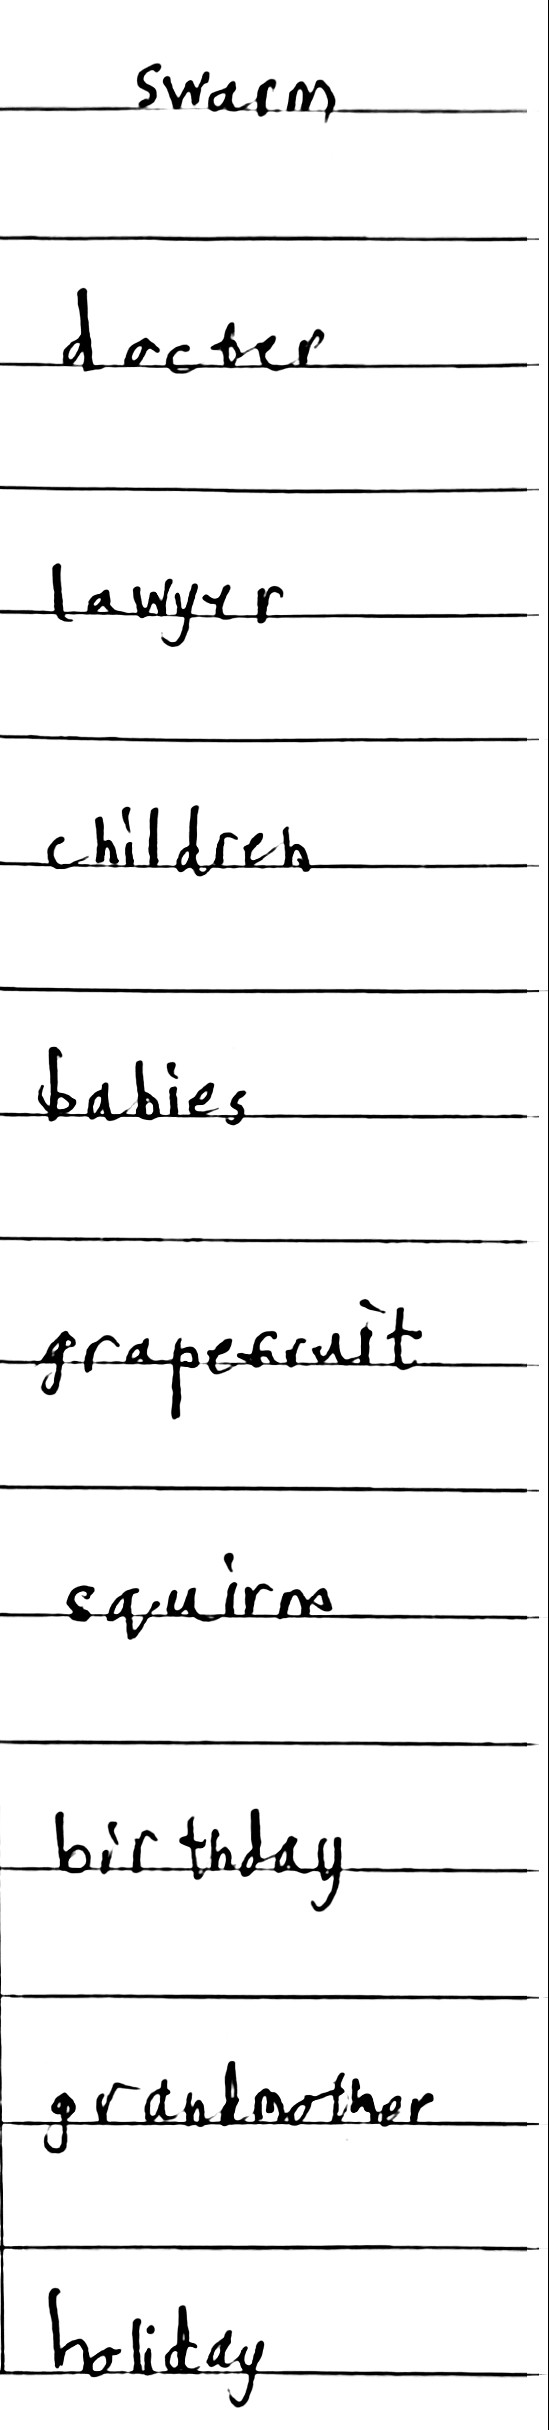 swarm
docter
lawyer
children
babies
grapefruit
squirm
birthday
grandmother
holiday